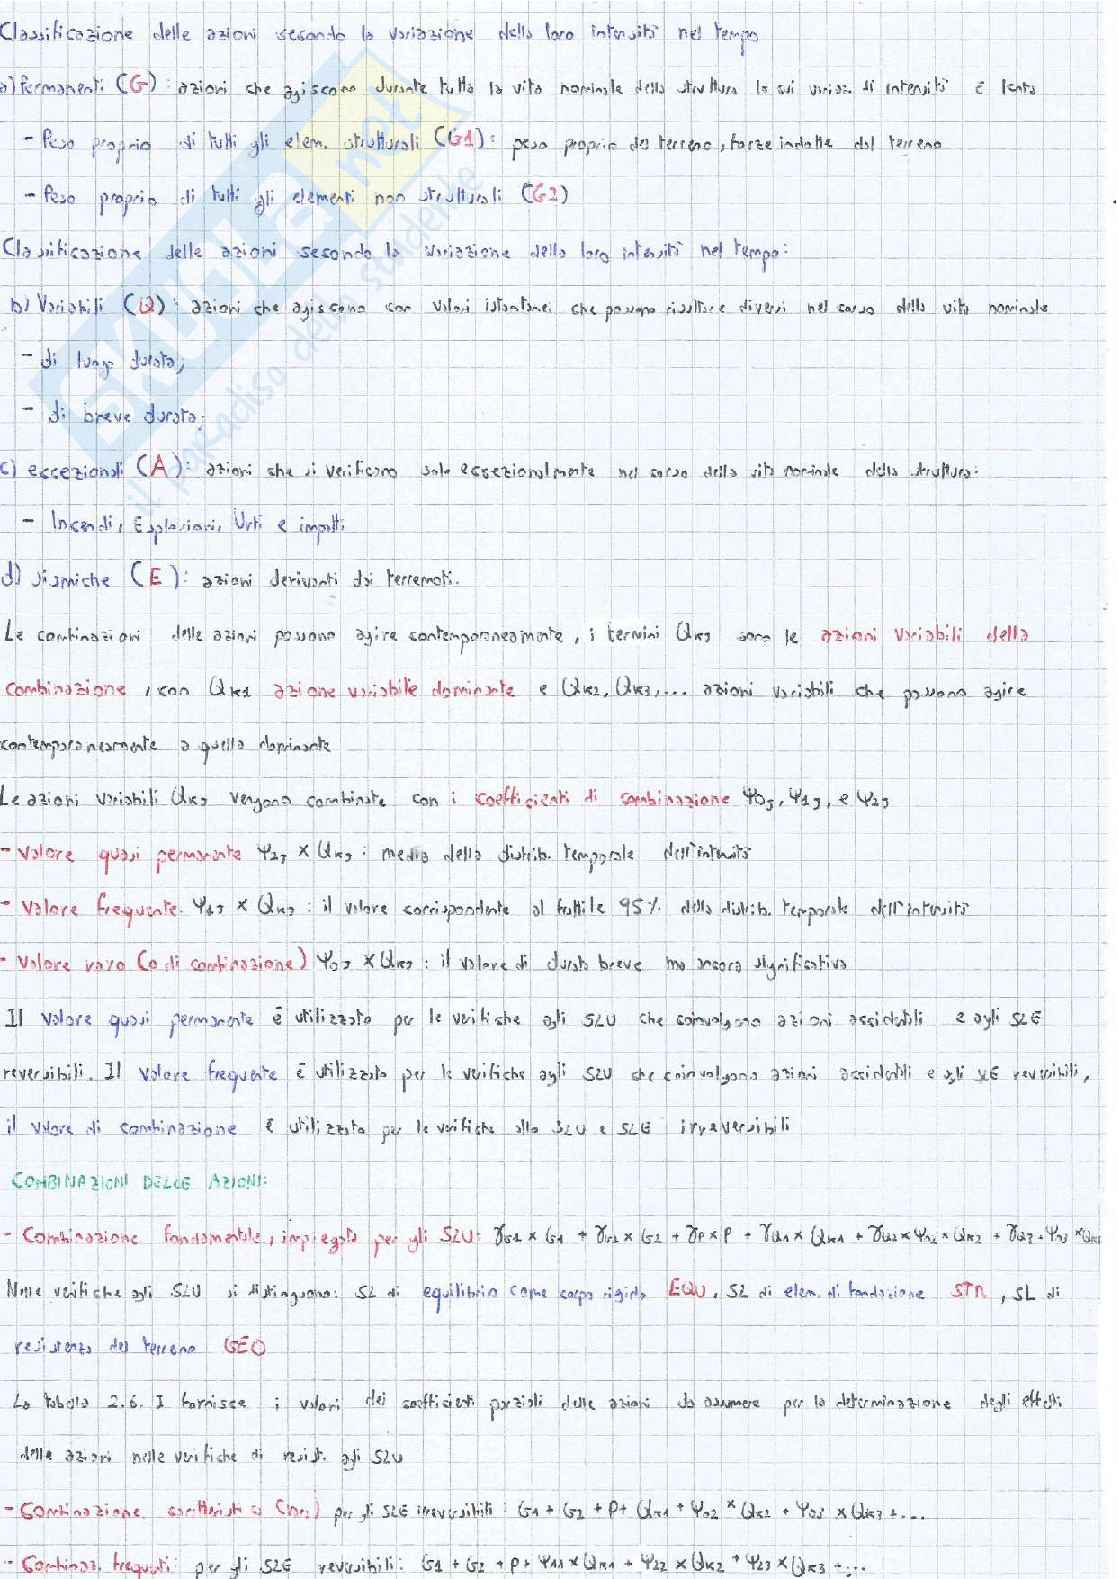 Classificazione delle azioni secondo la variazione della loro intensità nel tempo
a) Permanenti (G): azioni che agiscono durante tutta la vita nominale della struttura la cui variaz. di intensità è lenta
- Peso proprio di tutti gli elem. strutturali (G1): peso proprio del terreno, forze indotte dal terreno
- Peso proprio di tutti gli elementi non strutturali (G2)
Classificazione delle azioni secondo la variazione della loro intensità nel tempo:
b) Variabili (Q): azioni che agiscono con valori istantanei che possono risultare diversi nel corso della vita nominale
- di lunga durata;
- di breve durata;
c) eccezionali (A): azioni che si verificano solo eccezionalmente nel corso della vita nominale della struttura:
- Incendi, Esplosioni, Urti e impatti
d) sismiche (E): azioni derivanti dai terremoti.
Le combinazioni delle azioni possono agire contemporaneamente, i termini QKJ sono le azioni variabili della
combinazione, con QK1 azione variabile dominante e QK2, QK3,... azioni variabili che possono agire
contemporaneamente a quella dominante
Le azioni variabili QKJ vengono combinate con i coefficienti di combinazione Ψ0J, Ψ1J, e Ψ2J
- Valore quasi permanente Ψ2J × QKJ : media della distrib. temporale dell'intensità
- Valore frequente Ψ1J × QKJ : il valore corrispondente al frattile 95% della distrib. temporale dell'intensità
- Valore raro (o di combinazione) Ψ0J × QKJ : il valore di durata breve ma ancora significativa
Il valore quasi permanente è utilizzato per le verifiche agli SLU che coinvolgono azioni accidentali e agli SLE
reversibili. Il valore frequente è utilizzato per le verifiche agli SLU che coinvolgono azioni accidentali e agli SLE reversibili,
il valore di combinazione è utilizzato per le verifiche allo SLU e SLE irreversibili
COMBINAZIONI DELLE AZIONI:
- Combinazione fondamentale, impiegata per gli SLU: γG1 × G1 + γG2 × G2 + γP × P + γQ1 × QK1 + γQ2 × Ψ02 × QK2 + γQ3 × Ψ03 × QK3
Nelle verifiche agli SLU si distinguono: SL di equilibrio come corpo rigido EQU, SL di elem. di fondazione STR, SL di
resistenza del terreno GEO
La tabella 2.6.I fornisce i valori dei coefficienti parziali delle azioni da assumere per la determinazione degli effetti
delle azioni nelle verifiche di resist. agli SLU
- Combinazione caratteristica (rara) per gli SLE irreversibili : G1 + G2 + P + QK1 + Ψ02 × QK2 + Ψ03 × QK3 + ...
- Combinaz. frequenti per gli SLE reversibili: G1 + G2 + P + Ψ11 × QK1 + Ψ22 × QK2 + Ψ23 × QK3 + ...
SKUOLA.net
il paradiso dello studente